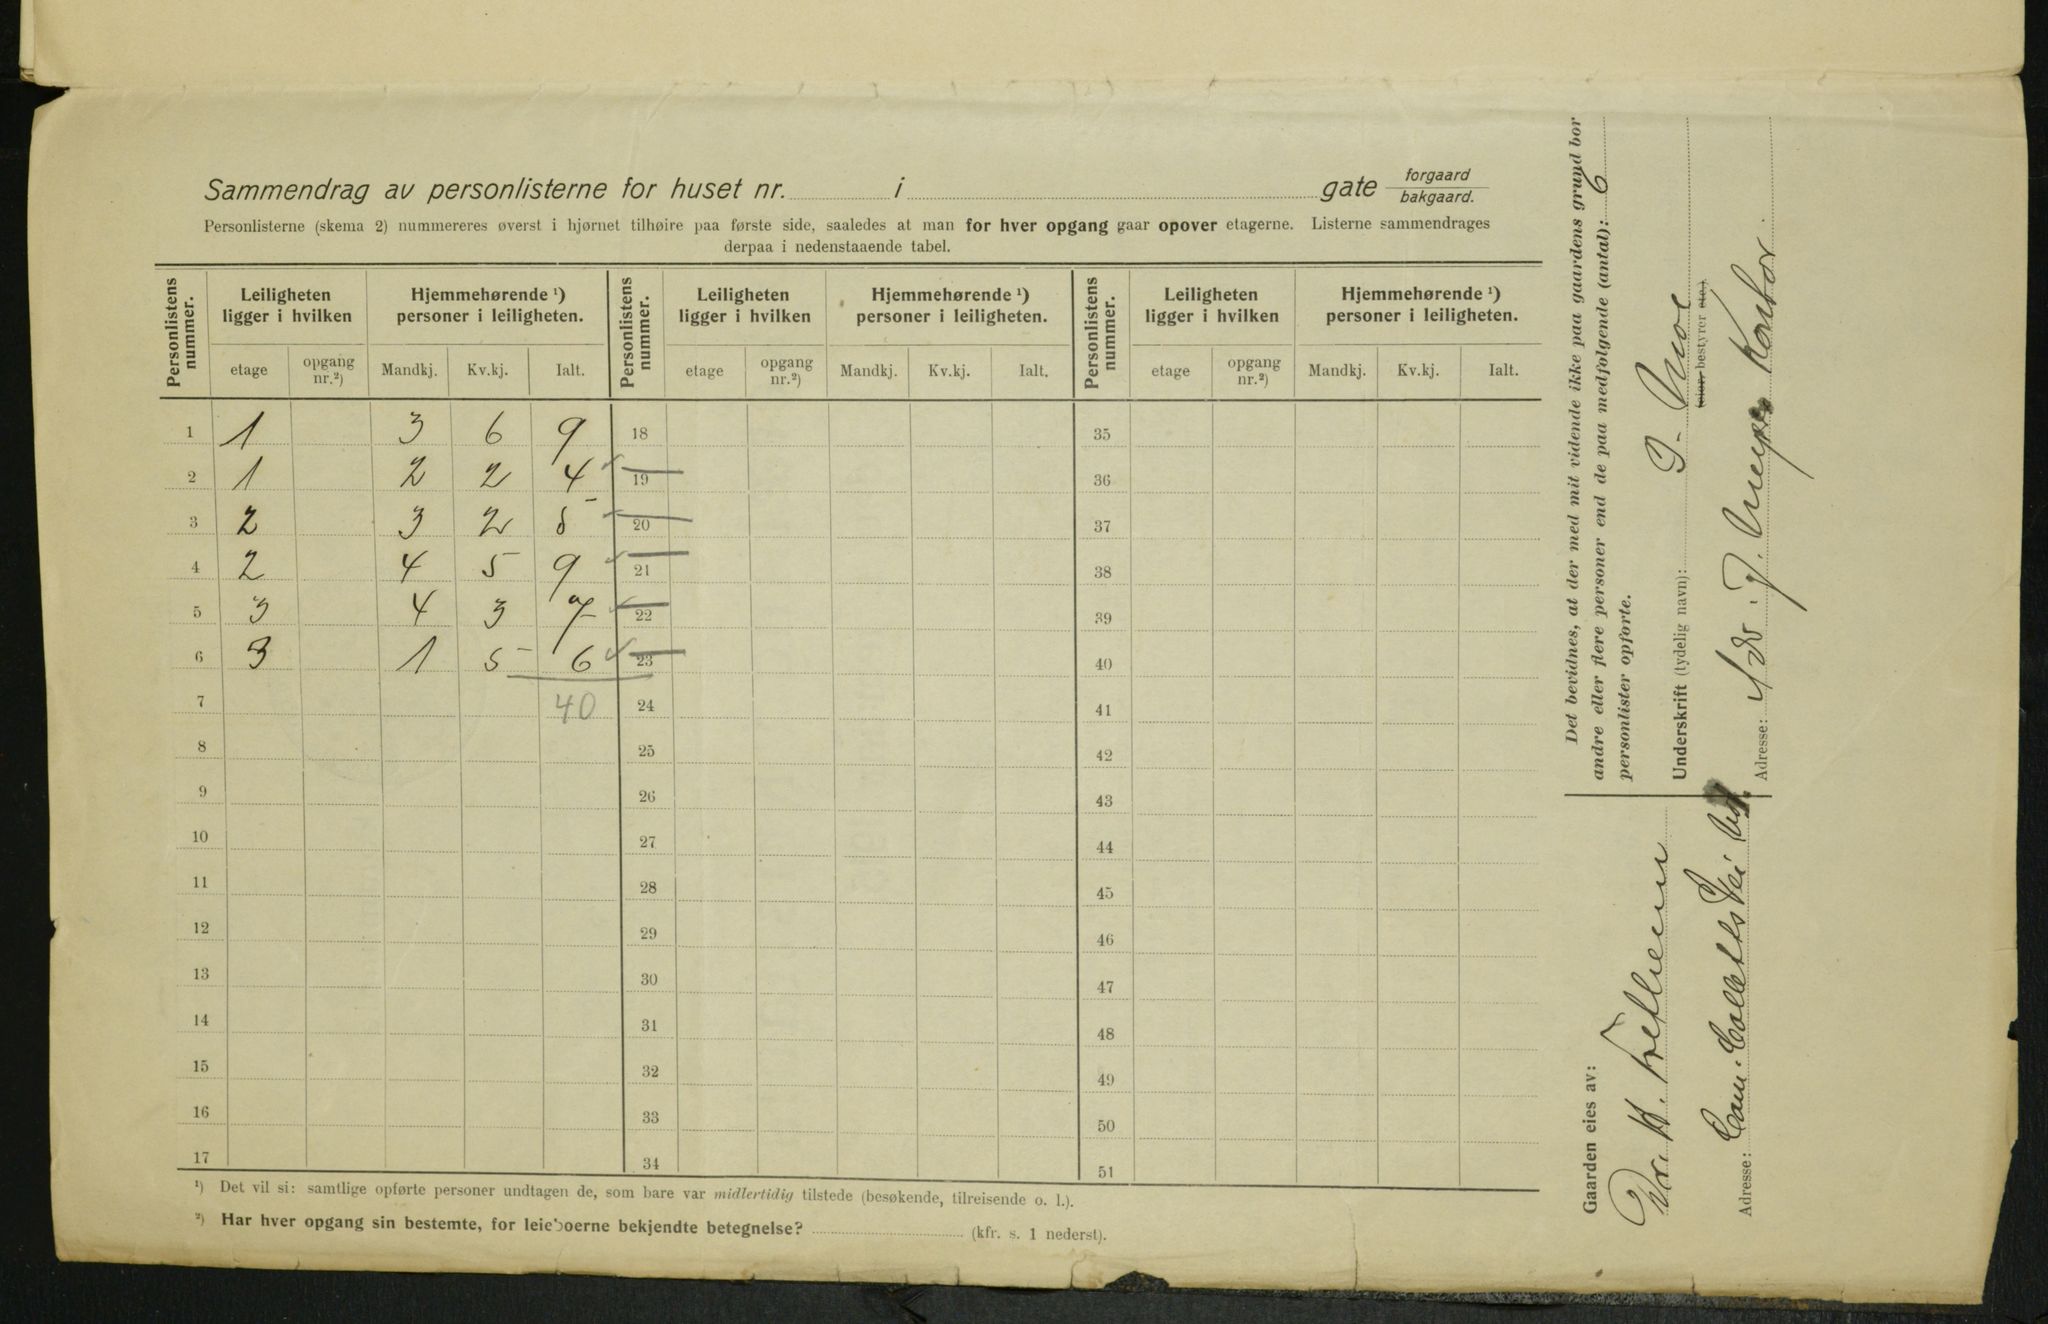 Sammendrag av personlisterne for huset nr. i gate forgaard
bakgaard.
Personlisterne (skema 2) nummereres øverst i hjørnet tilhøire paa første side, saaledes at man for hver opgang gaar opover etagerne. Listerne sammendrages
derpaa i nedenstaaende tabel.
Personlistens nummer. Leiligheten ligger i hvilken Hjemmehørende ¹) personer i leiligheten. Personlistens nummer. Leiligheten ligger i hvilken Hjemmehørende ¹) personer i leiligheten. Personlistens nummer. Leiligheten ligger i hvilken Hjemmehørende ¹) personer i leiligheten.
etage opgang nr.²) Mandkj. Kv.kj. Ialt. etage opgang nr.²) Mandkj. Kv.kj. Ialt. etage opgang nr.²) Mandkj. Kv.kj. Ialt.
1 1 3 6 9 18 35
2 1 2 2 4 19 36
3 2 3 2 5 20 37
4 2 4 5 9 21 38
5 3 4 3 7 22 39
6 3 1 5 6 23 40
7 40 24 41
8 25 42
9 26 43
10 27 44
11 28 45
12 29 46
13 30 47
14 31 48
15 32 49
16 33 50
17 34 51
¹) Det vil si: samtlige opførte personer undtagen de, som bare var midlertidig tilstede (besøkende, tilreisende o. l.).
²) Har hver opgang sin bestemte, for leieboerne bekjendte betegnelse? (kfr. s. 1 nederst).
Det bevidnes, at der med mit vidende ikke paa gaardens grund bor
andre eller flere personer end de paa medfølgende (antal): 6
personlister opførte.
Underskrift (tydelig navn): J. Moe
eier, bestyrer etc.)
Adresse: Adv. J. Meyers Kontor.
Gaarden eies av:
Dr. H.
Adresse: Cam. Colletts Vei